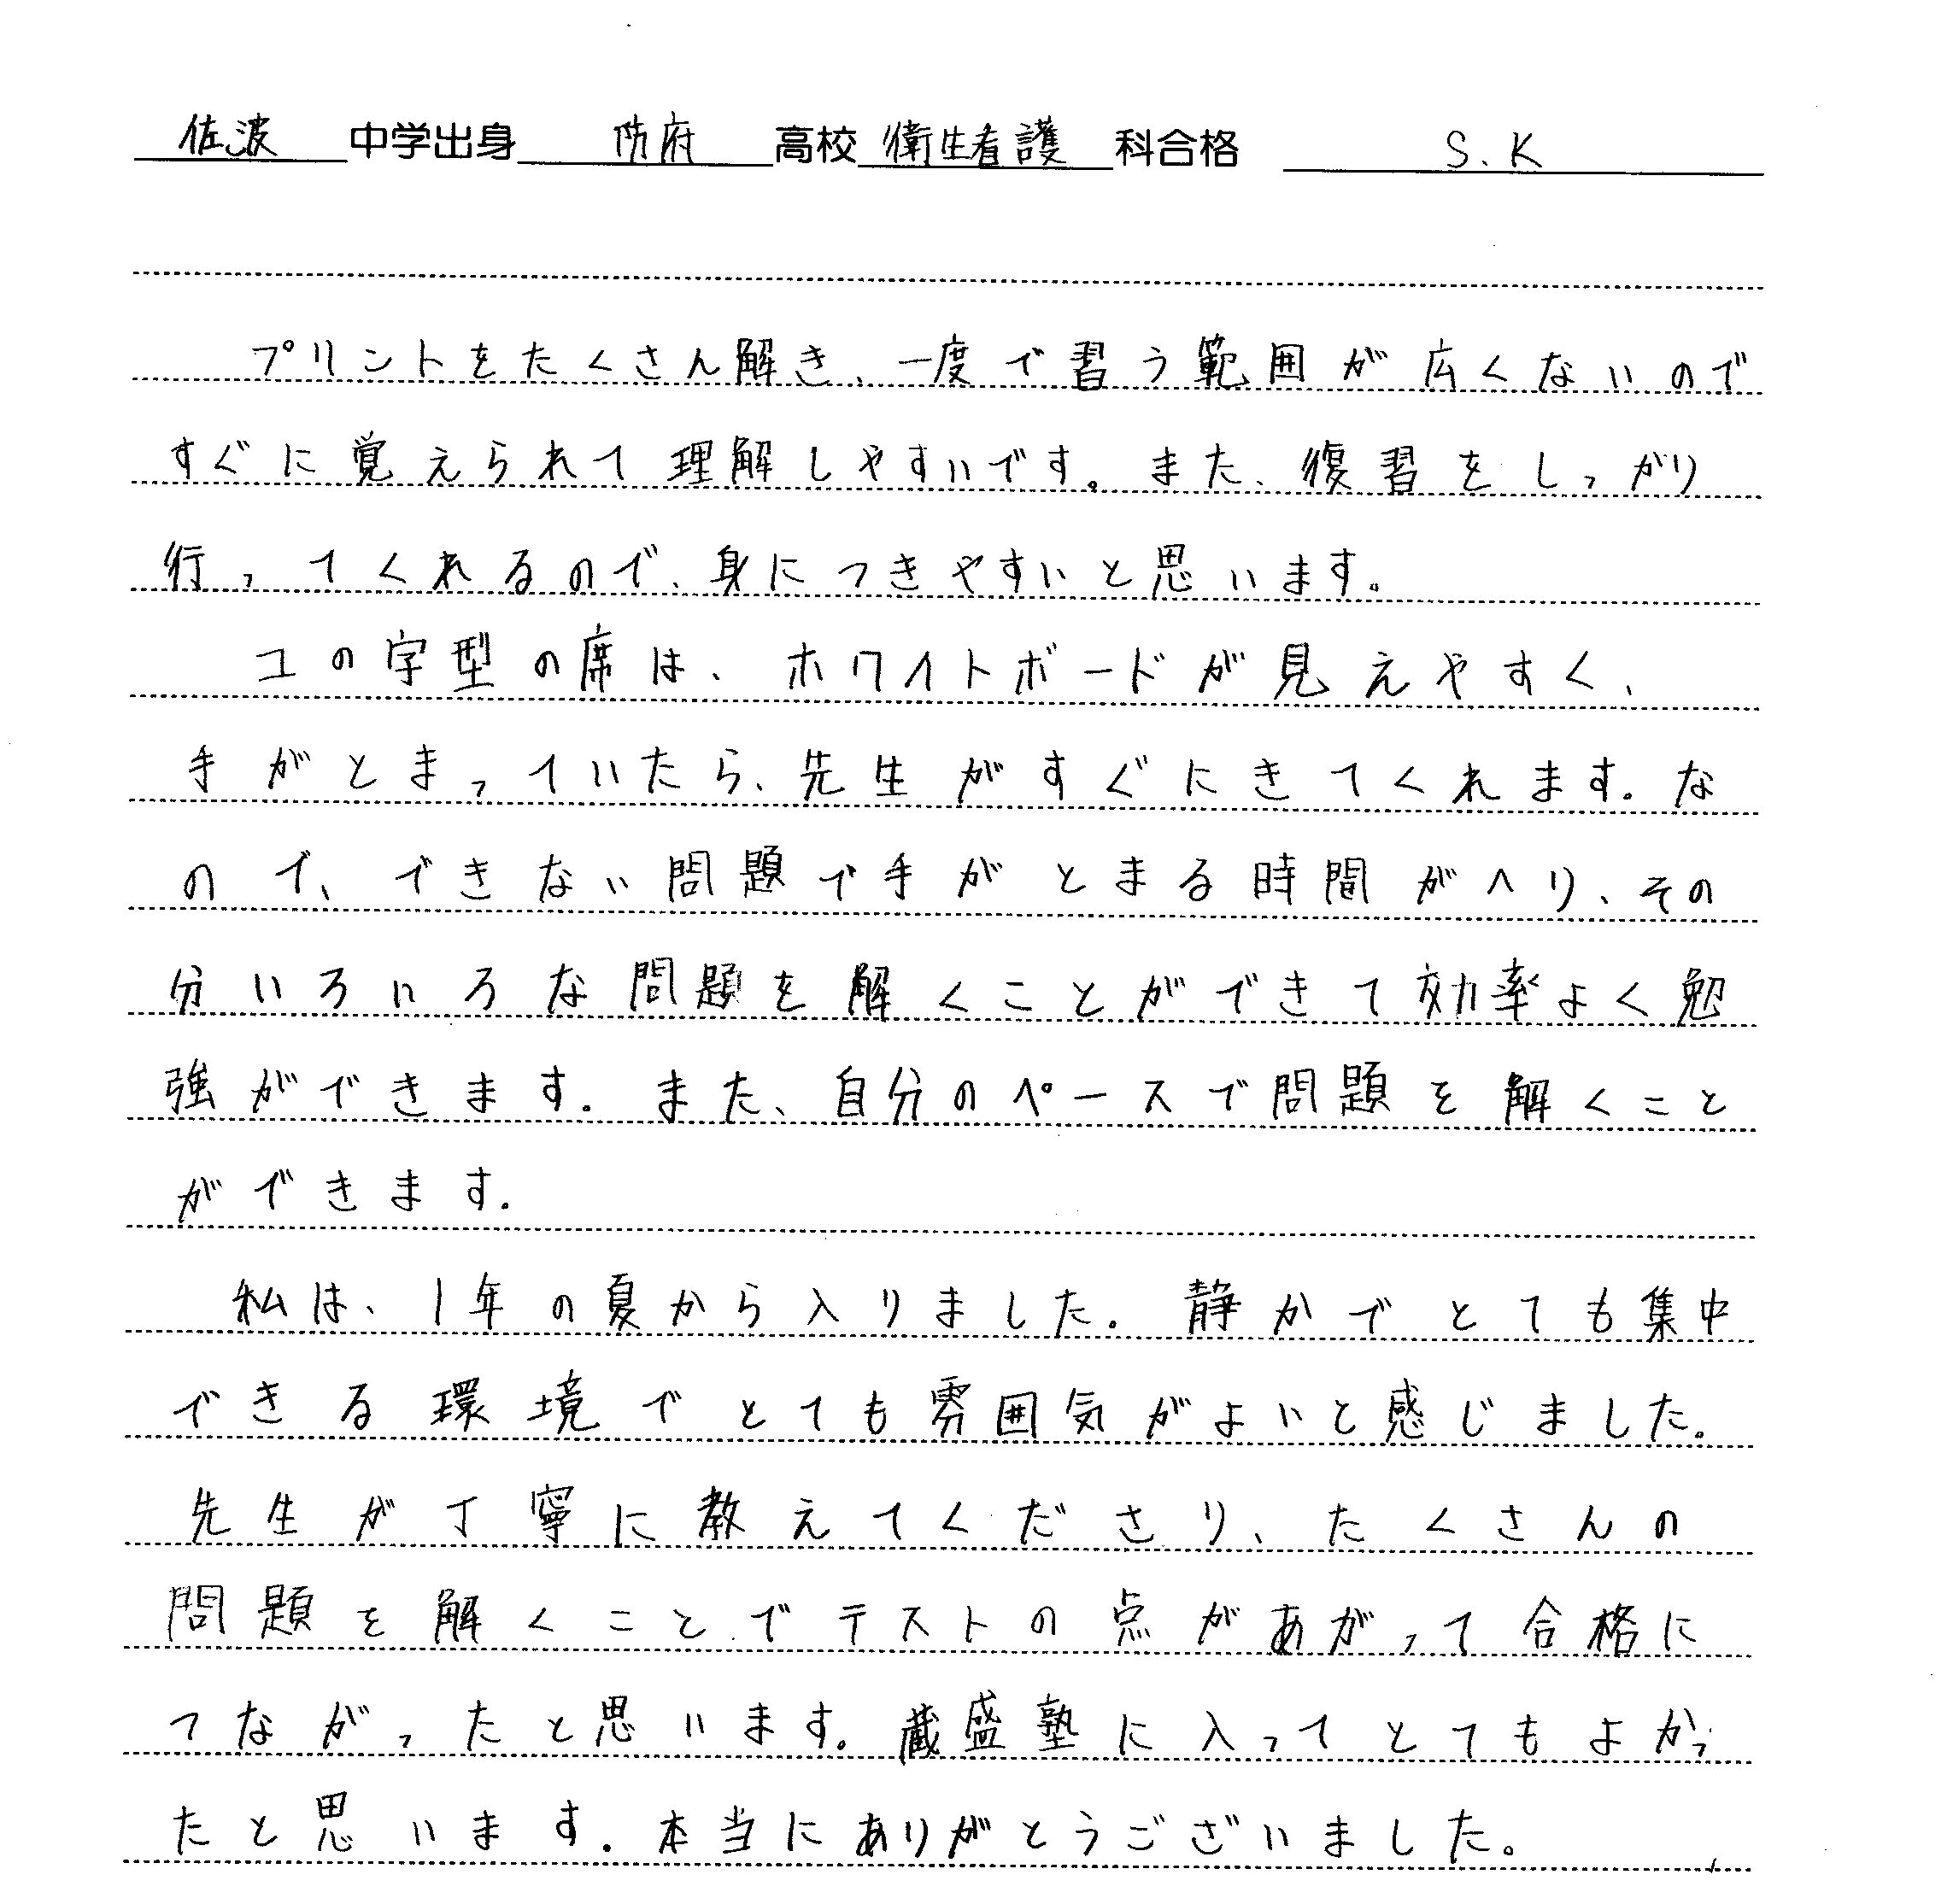 佐波中学出身 防府高校衛生看護科合格 S.K
プリントをたくさん解き、一度で習う範囲が広くないので
すぐに覚えられて理解しやすいです。また、復習をしっかり
行ってくれるので、身につきやすいと思います。
コの字型の席は、ホワイトボードが見えやすく、
手がとまっていたら、先生がすぐにきてくれます。な
ので、できない問題で手がとまる時間がへり、その
分いろいろな問題を解くことができて効率よく勉
強ができます。また、自分のペースで問題を解くこと
ができます。
私は、1年の夏から入りました。静かでとても集中
できる環境でとても雰囲気がよいと感じました。
先生が丁寧に教えてくださり、たくさんの
問題を解くことでテストの点があがって合格に
つながったと思います。蔵盛塾に入ってとてもよかっ
たと思います。本当にありがとうございました。